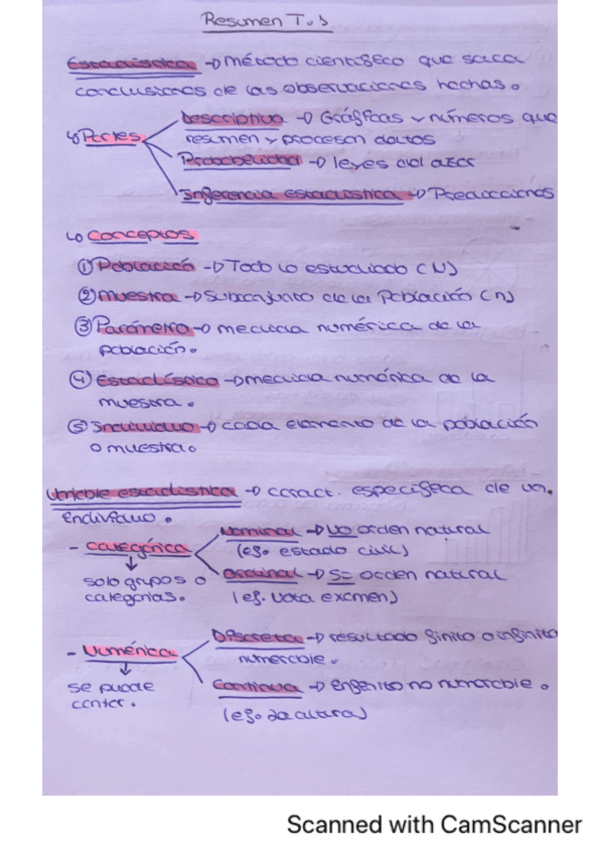 Resumen T.1
Estadística → método científico que saca
conclusiones de las observaciones hechas.
↳ Partes
Descriptiva → Gráficas y números que
resumen y procesan datos
Probabilidad → leyes del azar
Inferencia estadística → Predicciones
↳ Conceptos
① Población → Todo lo estudiado (N)
② Muestra → Subconjunto de la Población (n)
③ Parámetro → medida numérica de la
población.
④ Estadístico → medida numérica de la
muestra.
⑤ Individuo → cada elemento de la población
o muestra.
Variable estadística → caract. específica de un
individuo.
- Categórica
↓
solo grupos o
categorías.
Nominal → No orden natural
(ej. estado civil)
Ordinal → Sí orden natural
(ej. Nota examen)
- Numérica
↓
se puede
contar.
Discreta → resultado finito o infinito
numerable.
Continua → infinito no numerable.
(ej. la altura)
Scanned with CamScanner